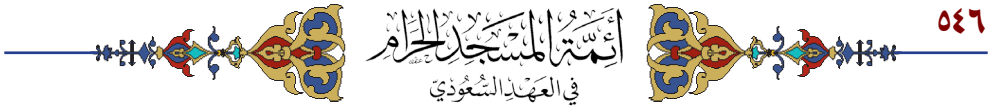 ٥٤٦
أَئِمَّةُ المَسْجِدِ الحَرَامِ
فِي العَهْدِ السُّعُودِيّ